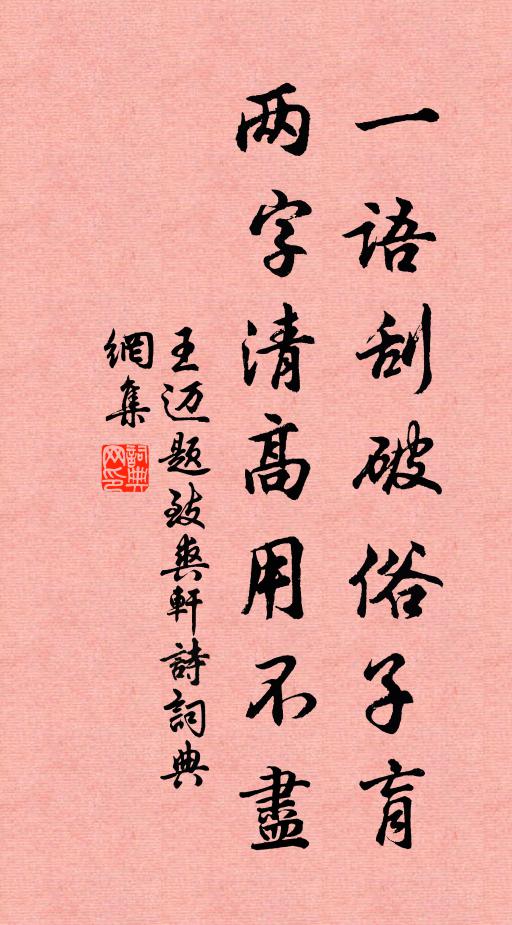 一語刮破俗子肓
两字清高用不盡
王迈题致爽軒詩詞典
網集
詞典
网印